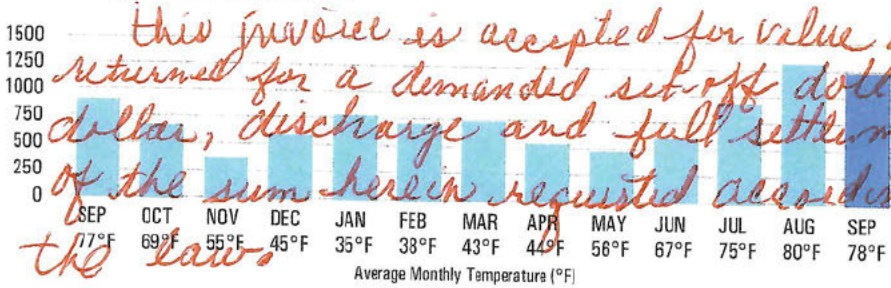 this invoice is accepted for value
returned for a demanded set-off
dollar, discharge and full
of the sum herein requested
the law.
1500
1250
1000
750
500
250
0
SEP OCT NOV DEC JAN FEB MAR APR MAY JUN JUL AUG SEP
77°F 69°F 55°F 45°F 35°F 38°F 43°F 44°F 56°F 67°F 75°F 80°F 78°F
Average Monthly Temperature (°F)